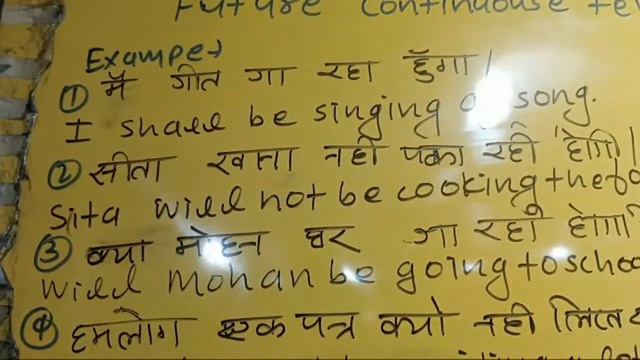 Future Continuouse te
Exampe
① मैं गीत गा रहा हूँगा।
I shall be singing a song.
② सीता खाना नही पका रही होगी।
Sita will not be cooking the fo
③ क्या मोहन घर जा रहा होगा
Will mohan be going to schoo
④ हमलोग एक पत्र क्यो नही लिखते